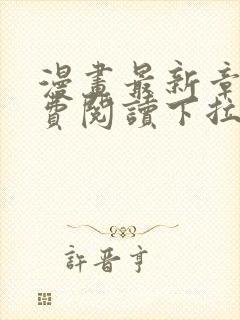 漫畫最新章
費閱讀下拉
許晋亨